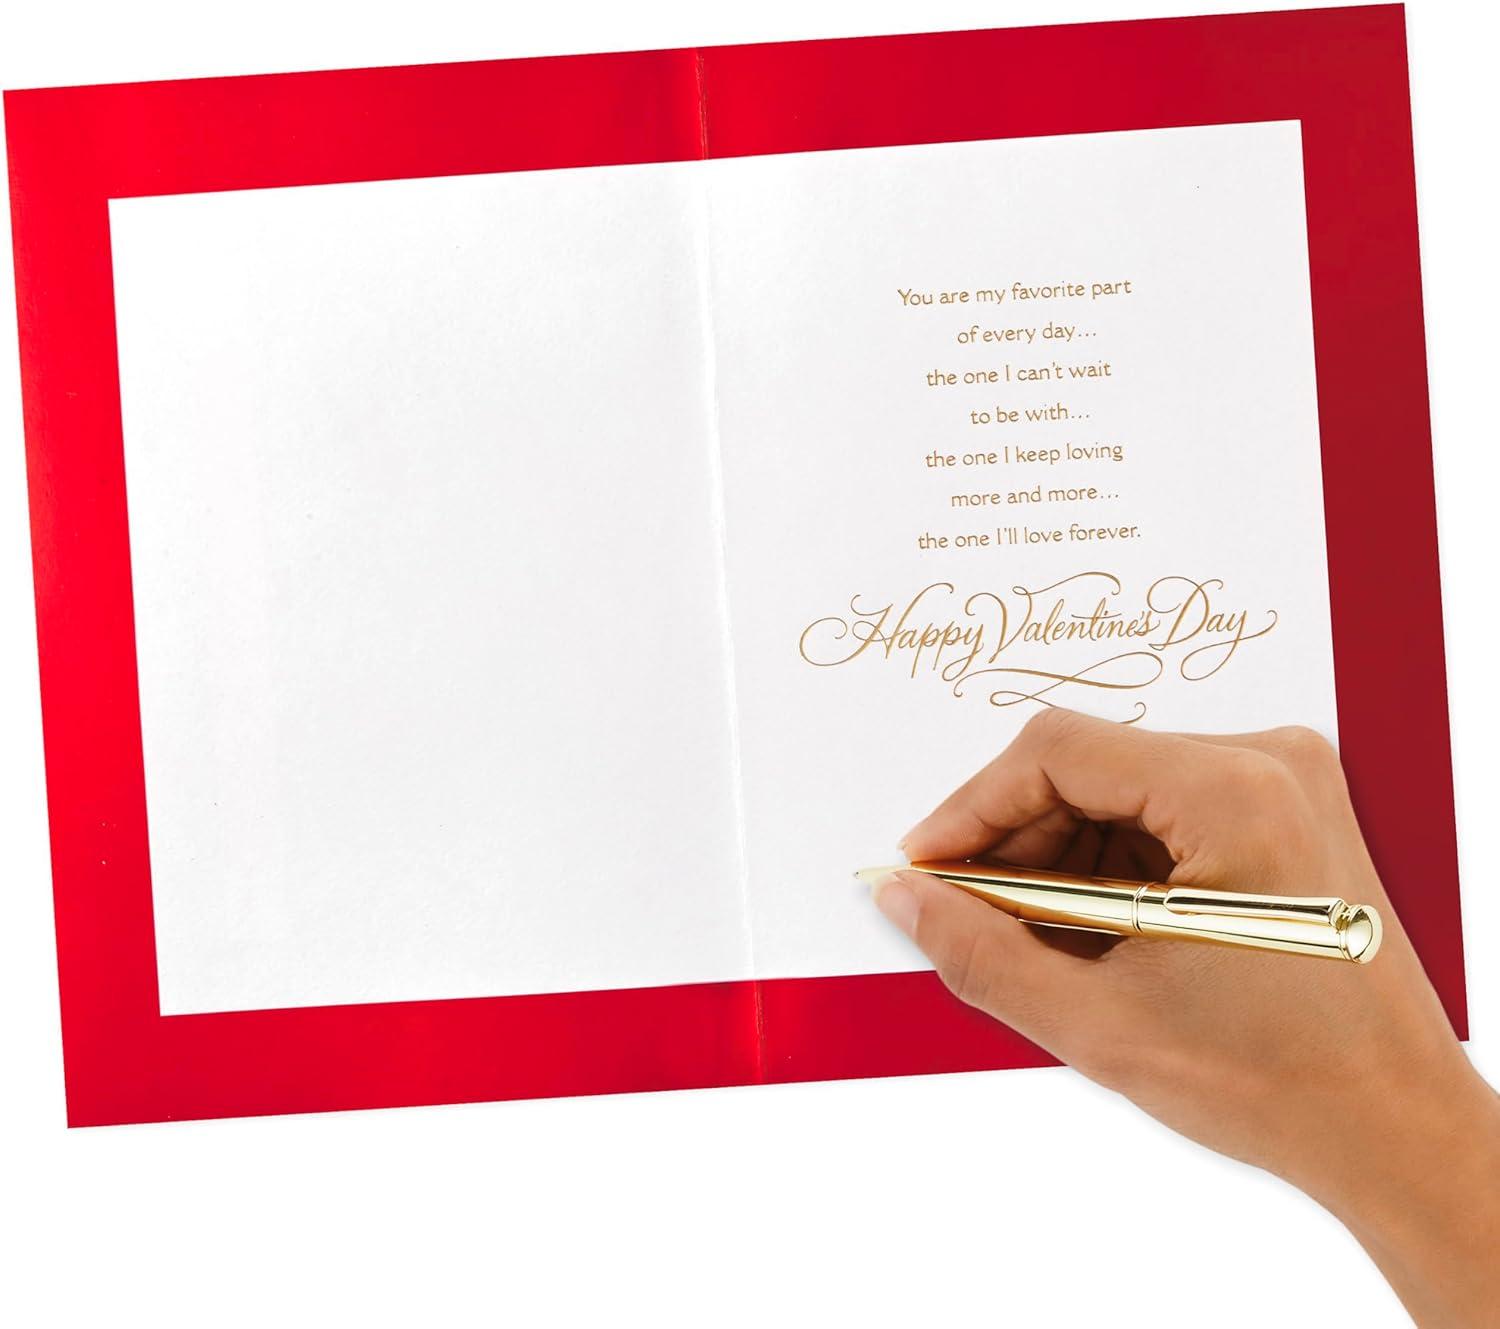 You are my favorite part
of every day...
the one I can't wait
to be with...
the one I keep loving
more and more...
the one I'll love forever.
Happy Valentine's Day